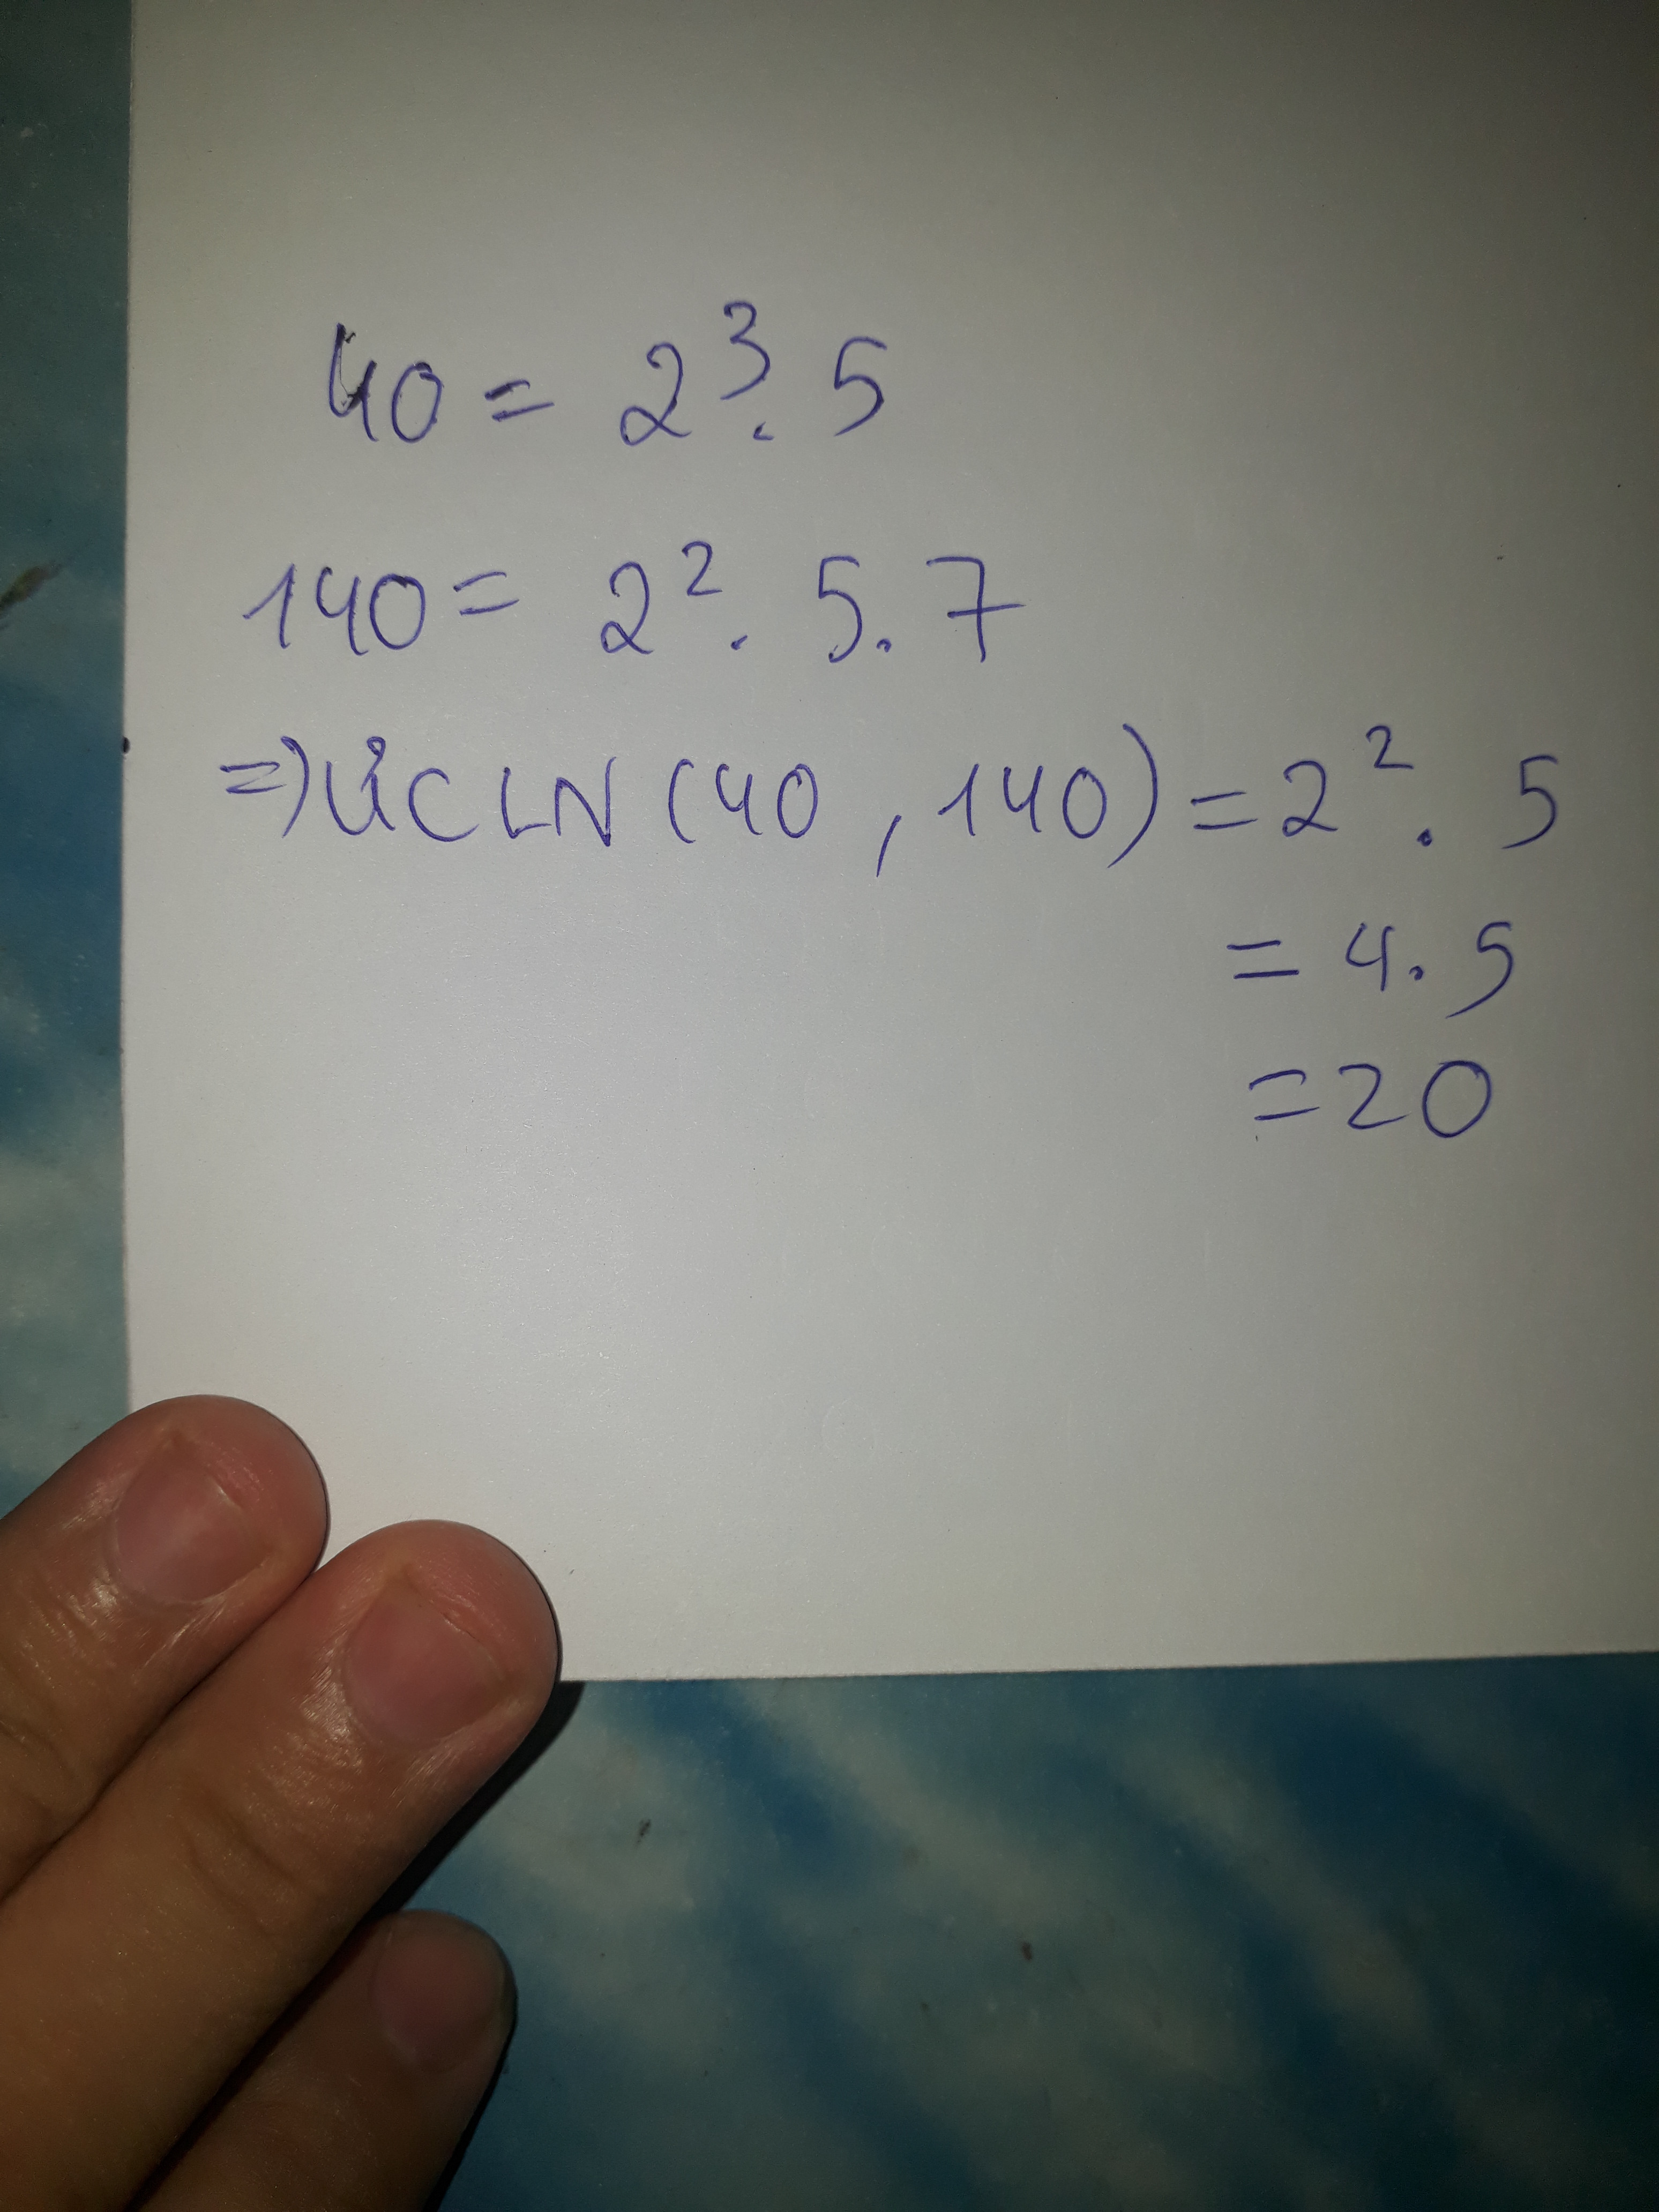 40 = 2³. 5
140 = 2². 5. 7
=> ƯCLN (40, 140) = 2². 5
= 4. 5
= 20